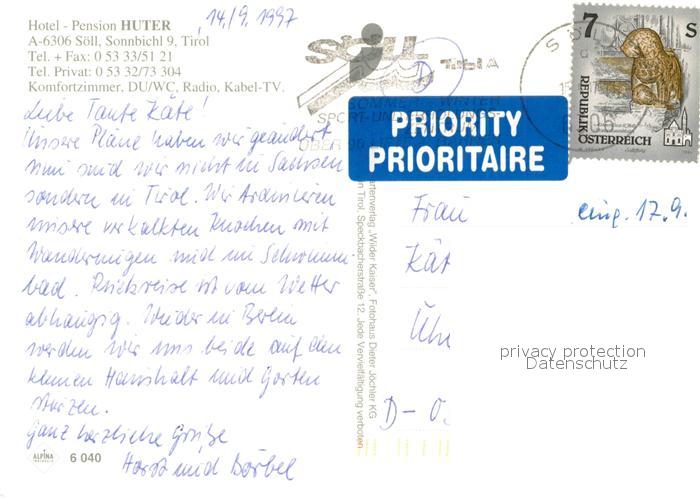 Hotel - Pension HUTER
A-6306 Söll, Sonnbichl 9, Tirol
Tel. + Fax: 0 53 33/51 21
Tel. Privat: 0 53 32/73 304
Komfortzimmer, DU/WC, Radio, Kabel-TV.
14/9. 1997
Liebe Tante Käte!
Unsere Pläne haben wir geändert,
nun sind wir nicht in Sachsen
sondern in Tirol. Wir
unsere verkalkten Knochen mit
Wanderungen und im Schwimm-
bad. Rückreise ist vom Wetter
abhängig. Wieder in Berlin
werden wir uns beide auf den
kleinen Haushalt und Garten
stürzen.
Ganz herzliche Grüße
Horst und Bärbel
ALPINA
6 040
SÖLL
Tirol A
SOMMER - WINTER
SPORT- UND
ÜBER 90
PRIORITY
PRIORITAIRE
7 S
REPUBLIK
ÖSTERREICH
6306
Kartenverlag „Wilder Kaiser", Fotohaus Dieter Jöchler KG
in Tirol, Speckbacherstraße 12. Jede Vervielfältigung verboten.
Frau
eing. 17.9.
Kät
Üh
D-0
privacy protection
Datenschutz